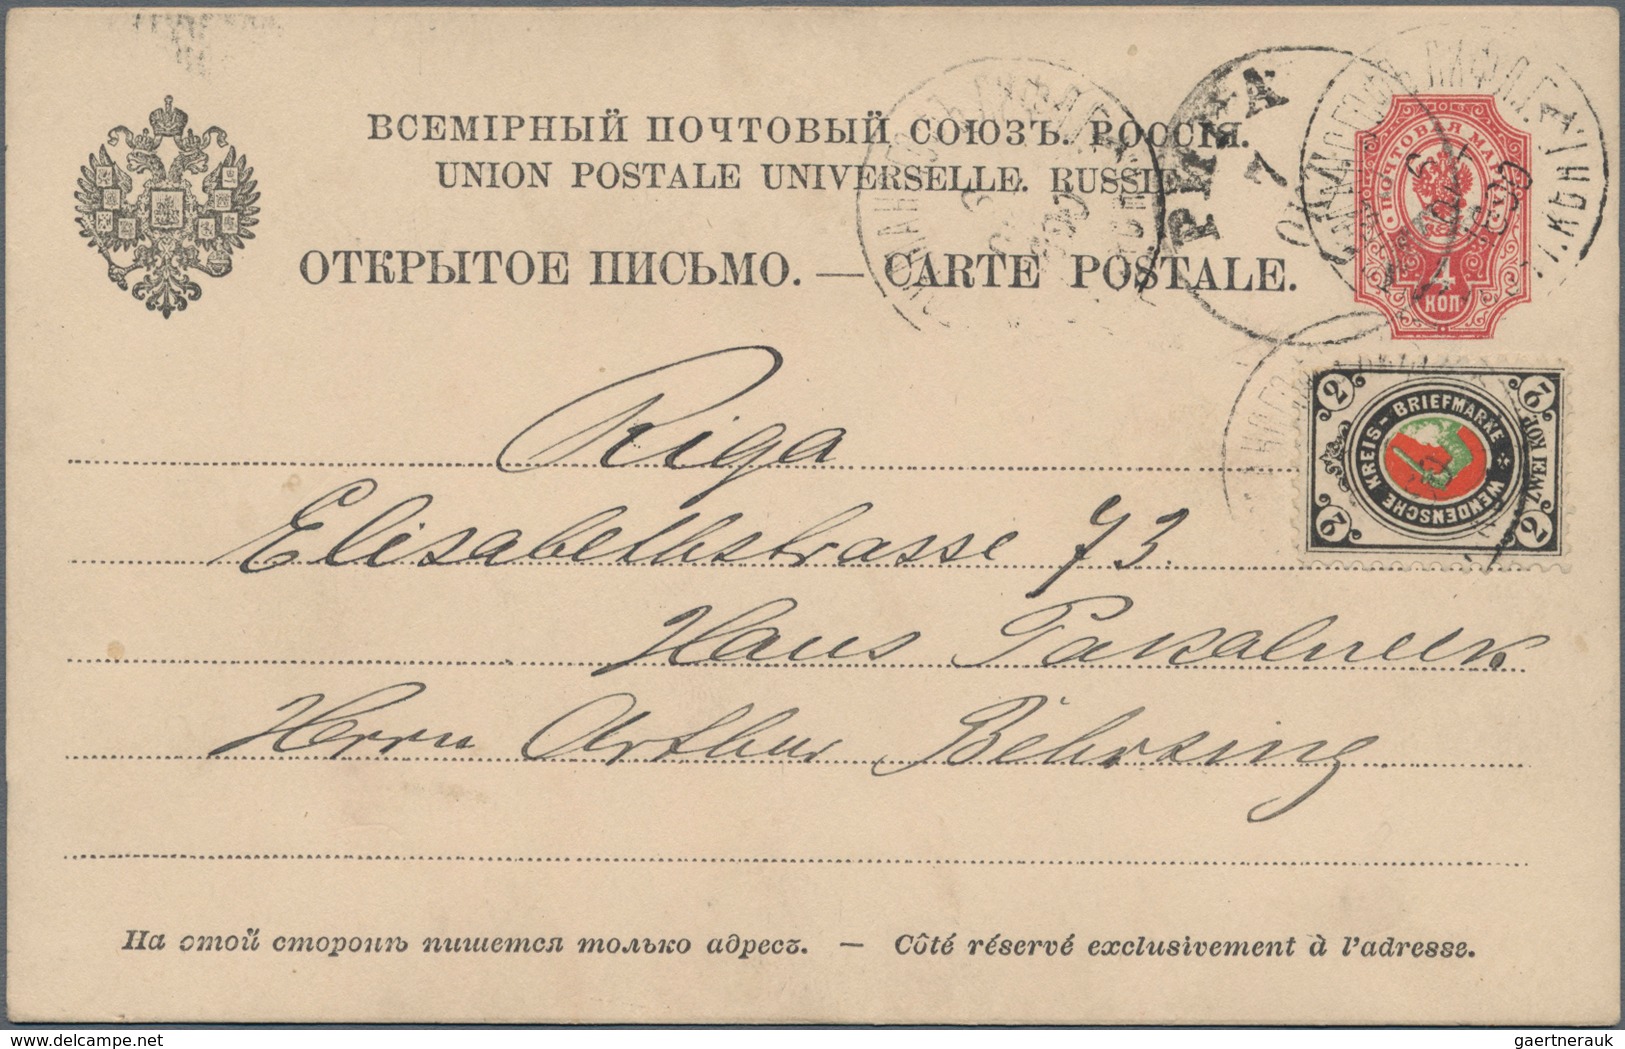 ВСЕМІРНЫЙ ПОЧТОВЫЙ СОЮЗЪ. РОССІЯ.
UNION POSTALE UNIVERSELLE. RUSSIE.
ОТКРЫТОЕ ПИСЬМО. — CARTE POSTALE.
ПОЧТОВАЯ МАРКА
4
КОП.
РИГА
7
1899
2 2
WENDENSCHE KREIS-BRIEFMARKE
ZWEI KOP.
2 2
Riga
Elisabethstrasse 73.
Haus
Herrn Arthur Behrsing
На этой сторонѣ пишется только адресъ. — Côté réservé exclusivement à l'adresse.
www.delcampe.net
gaertnerauk